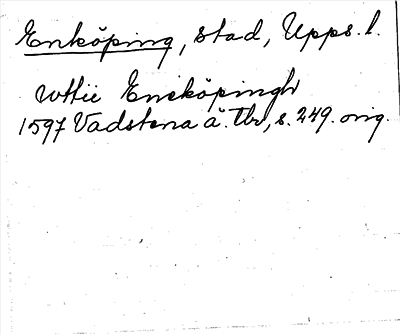 Enköping, stad, Upps. l.
vttii Eneköpingh
1597 Vadstena ä. Tb, s. 249. orig.